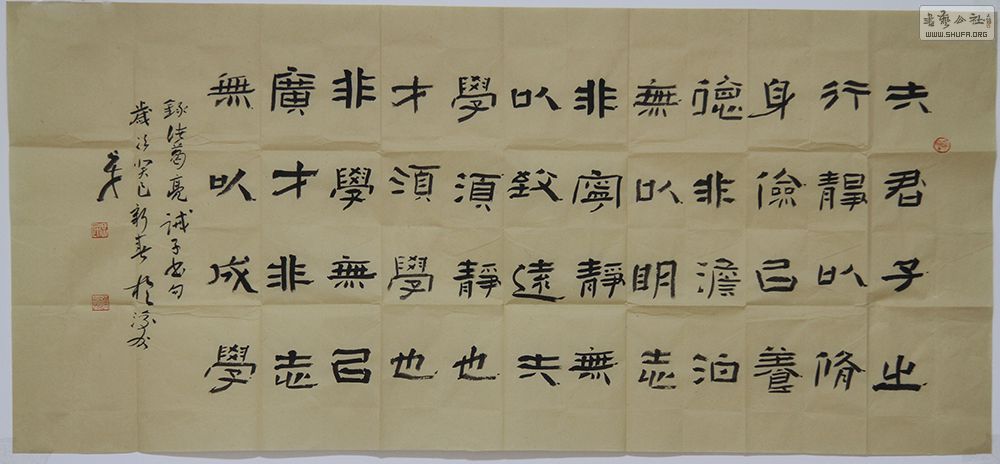 夫君子之
行靜以脩
身儉㠯養
德非澹泊
無以明志
非寧靜無
以致遠夫
學須靜也
才須學也
非學無㠯
廣才非志
無以成學
錄諸葛亮誡子書句
歲次癸巳新春於
書藝公社
WWW.SHUFA.ORG